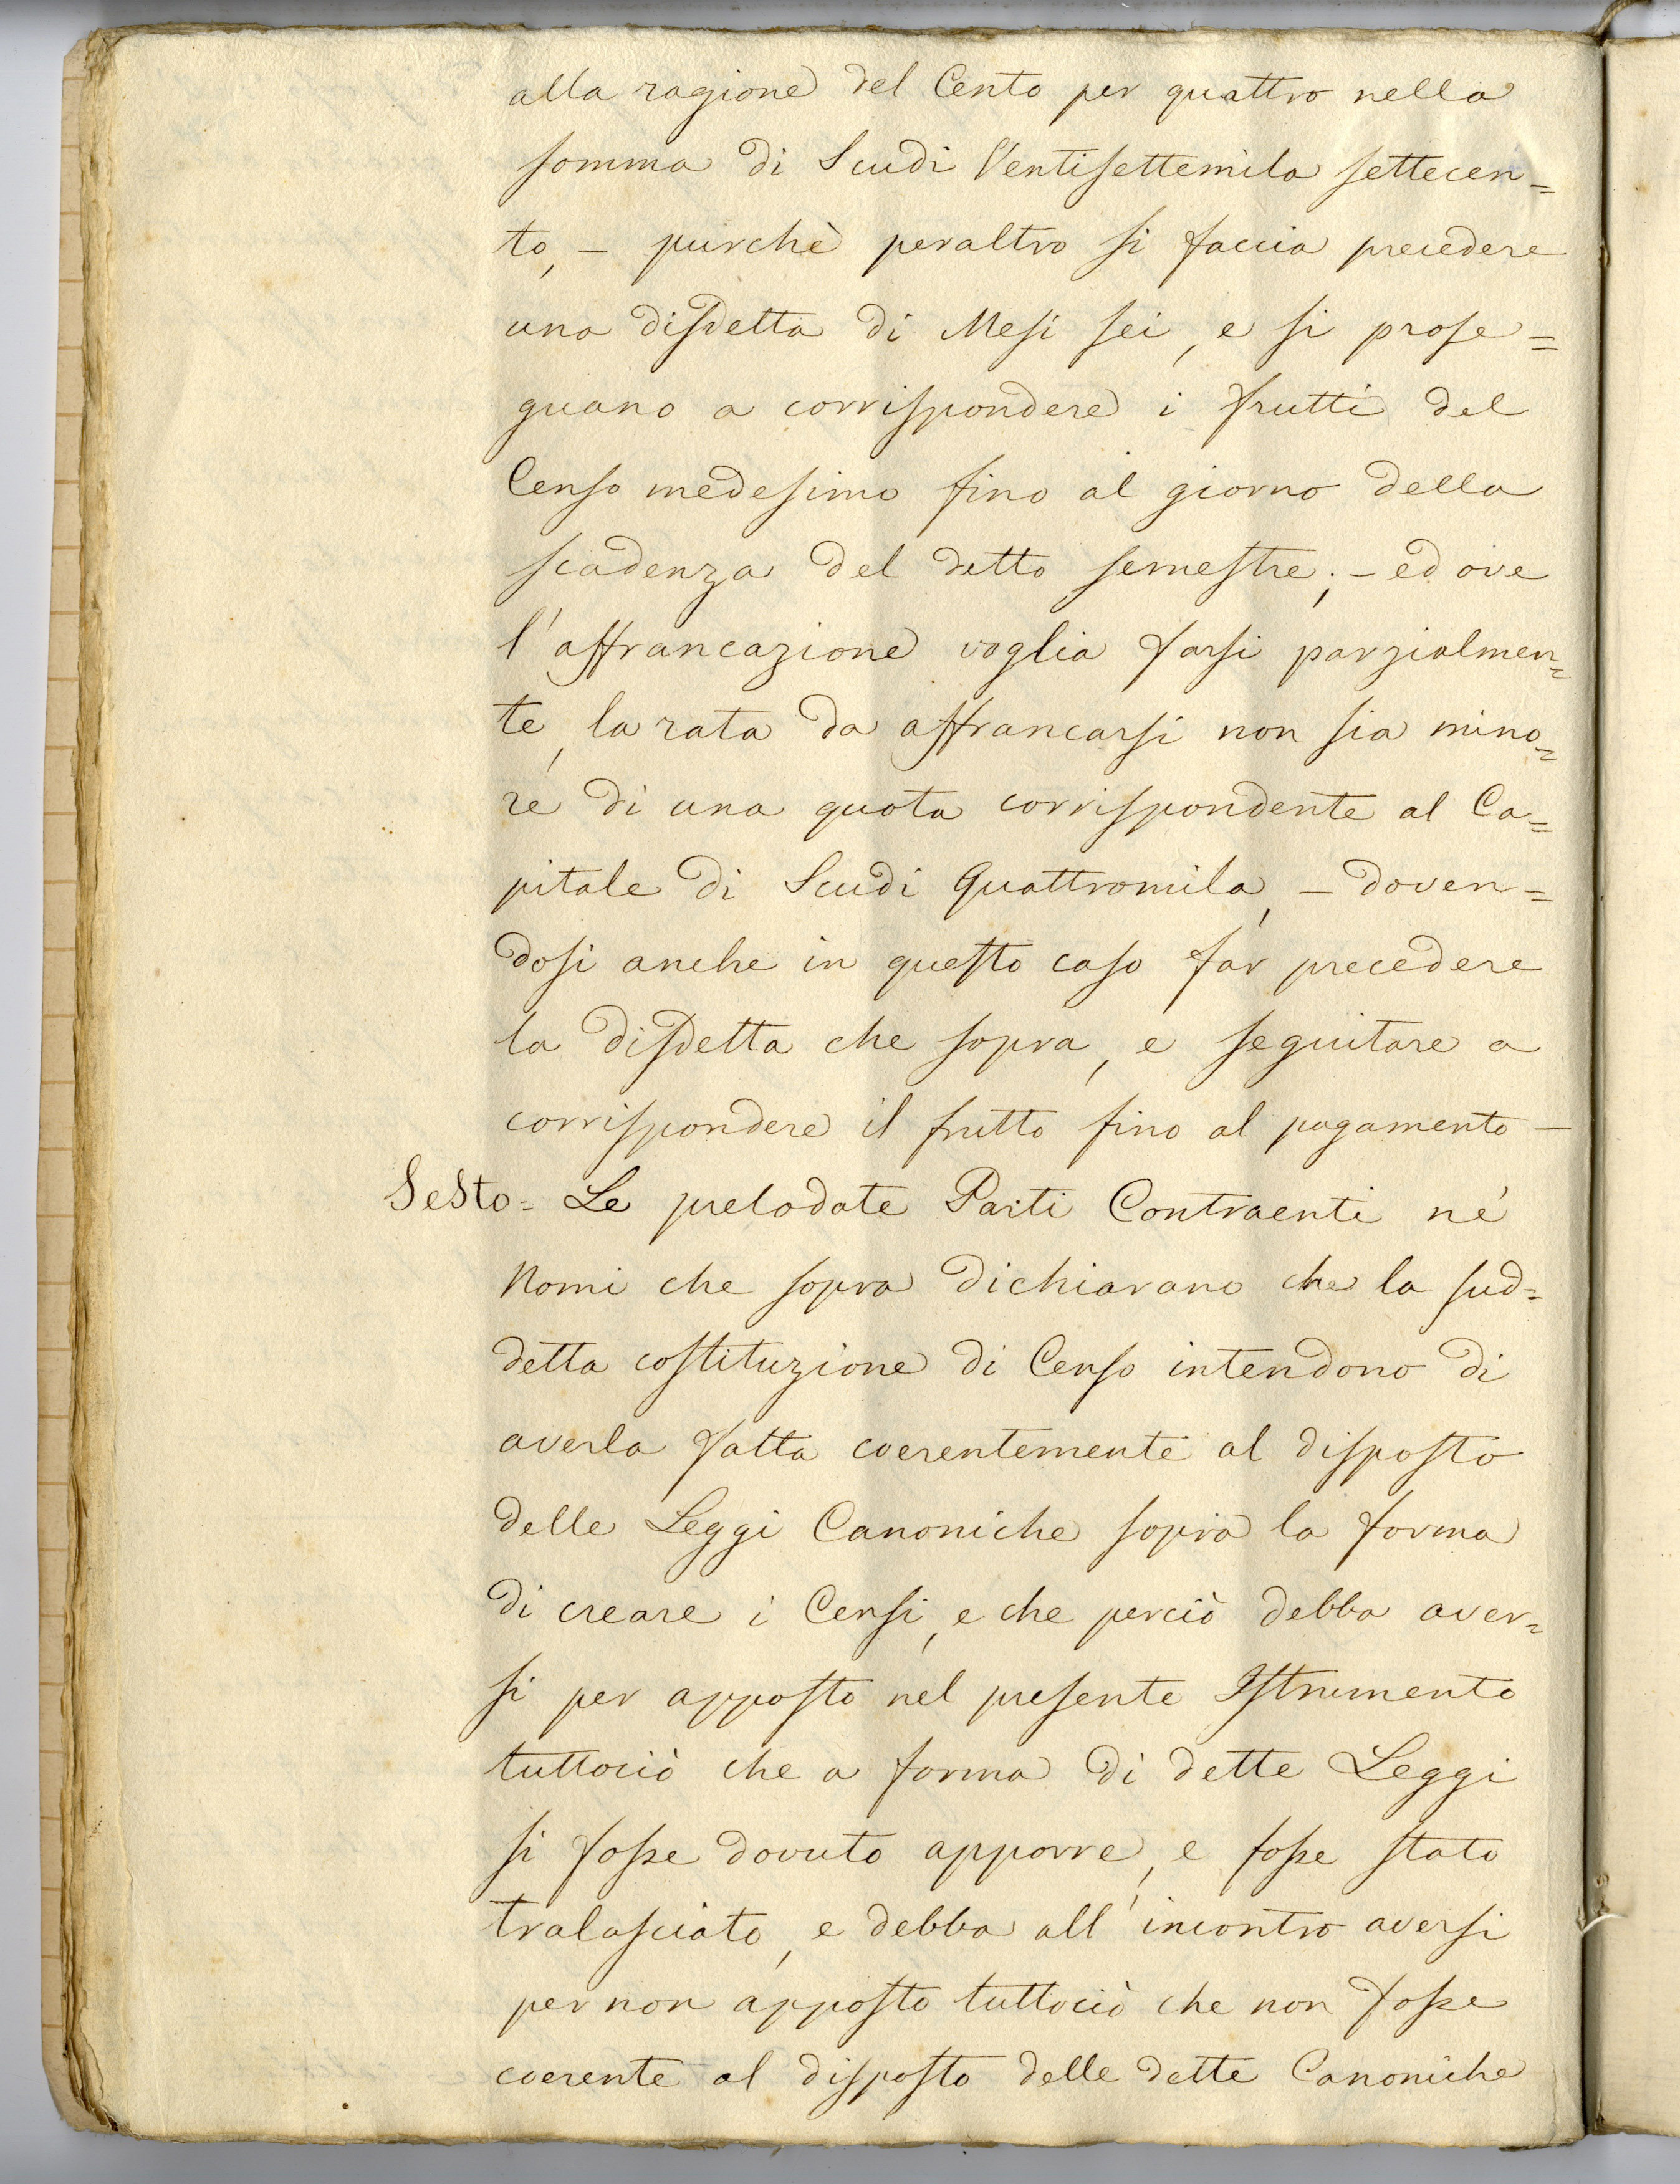 alla ragione del Cento per quattro nella
somma di Scudi Ventisettemila settecen=
to, – purchè peraltro si faccia precedere
una disdetta di Mesi sei, e si prose=
guano a corrispondere i frutti del
Censo medesimo fino al giorno della
scadenza del detto semestre; – ed ove
l'affrancazione voglia farsi parzialmen=
te, la rata da affrancarsi non sia mino=
re di una quota corrispondente al Ca=
pitale di Scudi Quattromila, – doven=
dosi anche in questo caso far precedere
la disdetta che sopra, e seguitare a
corrispondere il frutto fino al pagamento –
Sesto = Le prelodate Parti Contraenti nè
Nomi che sopra dichiarano che la sud=
detta costituzione di Censo intendono di
averla fatta coerentemente al disposto
delle Leggi Canoniche sopra la forma
di creare i Censi, e che perciò debba aver=
si per apposto nel presente Istrumento
tuttociò che a forma di dette Leggi
si fosse dovuto apporre, e fosse stato
tralasciato, e debba all'incontro aversi
per non apposto tuttociò che non fosse
coerente al disposto delle dette Canoniche